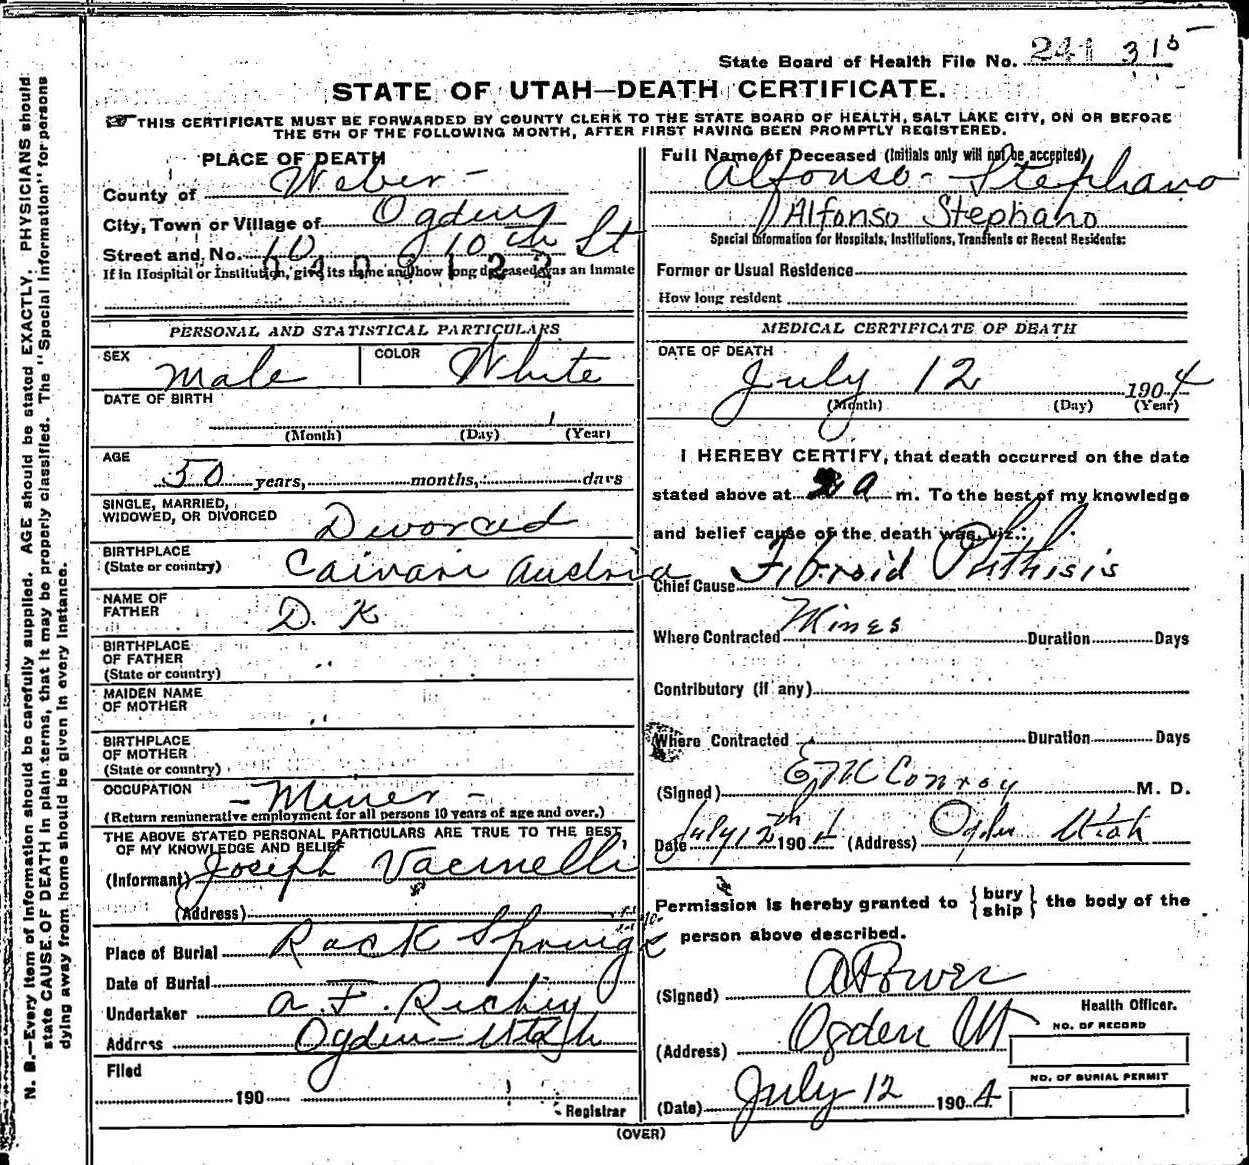 N. B.—Every item of information should be carefully supplied. AGE should be stated EXACTLY. PHYSICIANS should
state CAUSE OF DEATH in plain terms, that it may be properly classified. The "Special Information" for persons
dying away from home should be given in every instance.
State Board of Health File No. 241 315
STATE OF UTAH—DEATH CERTIFICATE.
THIS CERTIFICATE MUST BE FORWARDED BY COUNTY CLERK TO THE STATE BOARD OF HEALTH, SALT LAKE CITY, ON OR BEFORE
THE 5TH OF THE FOLLOWING MONTH, AFTER FIRST HAVING BEEN PROMPTLY REGISTERED.
PLACE OF DEATH
County of Weber
City, Town or Village of Ogden
Street and No. 10th St
If in Hospital or Institution, give its name and how long deceased was an inmate
PERSONAL AND STATISTICAL PARTICULARS
SEX Male COLOR White
DATE OF BIRTH
(Month) (Day) (Year)
AGE
50 years, months, days
SINGLE, MARRIED,
WIDOWED, OR DIVORCED Divorced
BIRTHPLACE
(State or country) Austria
NAME OF
FATHER D. K
BIRTHPLACE
OF FATHER
(State or country) "
MAIDEN NAME
OF MOTHER "
BIRTHPLACE
OF MOTHER
(State or country)
OCCUPATION Miner
(Return remunerative employment for all persons 10 years of age and over.)
THE ABOVE STATED PERSONAL PARTICULARS ARE TRUE TO THE BEST
OF MY KNOWLEDGE AND BELIEF
(Informant) Joseph Vacinelli
(Address)
Place of Burial Rock Springs
Date of Burial
Undertaker A. F. Richey
Address Ogden Utah
Filed
190
Registrar
Full Name of Deceased (Initials only will not be accepted)
Alfonso Stephano
Alfonso Stephano
Special Information for Hospitals, Institutions, Transients or Recent Residents:
Former or Usual Residence
How long resident
MEDICAL CERTIFICATE OF DEATH
DATE OF DEATH
July 12 1904
(Month) (Day) (Year)
I HEREBY CERTIFY, that death occurred on the date
stated above at a m. To the best of my knowledge
and belief cause of the death was, viz.:
Chief Cause Fibroid Phthisis
Where Contracted Mines Duration Days
Contributory (if any)
Where Contracted Duration Days
(Signed) E M Conroy M. D.
Date July 12th 1904 (Address) Ogden Utah
Permission is hereby granted to { bury ship } the body of the
person above described.
(Signed) A Power
Health Officer.
(Address) Ogden Ut
NO. OF RECORD
NO. OF BURIAL PERMIT
(Date) July 12 1904
(OVER)